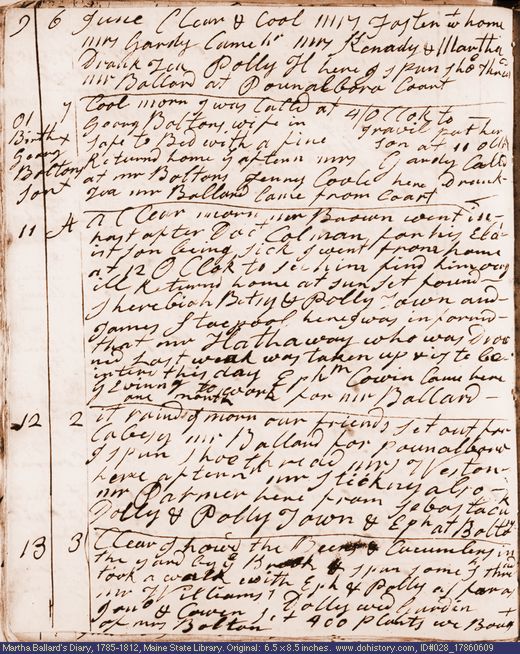 9 6 June Clear & Cool Mrs Foster went home
Mrs Gardy Came hr Mrs Kenady & Martha
Drank Tea Polly H here I spun Shoe thread
mr Ballard at Pounalboro Court
10 7 Cool morn I was Calld at 4 O Clok to
Birth Georg Boltons wife in Travil put her
Georg safe to Bed with a fine son at 11 O Clk
Boltons Returnd home I aftern mrs Gardy Calld
Son at mr Boltons Jenny Coole here Drank
Tea mr Ballard Came from Court
11 A a Clear morn mr Brown went in
hast after Doct Colman for his Eld
est son being sick I went from home
at 12 O Clok to se him find him very
ill Returnd home at sun set found
Shere biah Betsy & Polly Town and
James Stacpool here I was informd
that mr Hathaway who was Drow
ned Last weak was taken up & is to be
interd this day Ephm Cowin Came here
to work for mr Ballard
giving one month
12 2 it raind I morn our friends set out for
Cabesy mr Ballard for Pounalboro
I spun shoe thread mrs Weston
here aftern mr Stickny also
mr Parmer here from Sebasttacuk
Dolly & Polly Town & Eph at Boltons
13 3 Clear I how'd the Beens & Cucumbers in
the yard by ye Brook & spun some I thre
took a walk with Eph & Polly as far as
mr Williams's
Jona & Cowen Dolly wed Garden
of mrs Bolton 400 Plants we Boug
Martha Ballard's Diary, 1785-1812, Maine State Library. Original: 6.5 x 8.5 inches. www.dohistory.com, ID#028_17860609